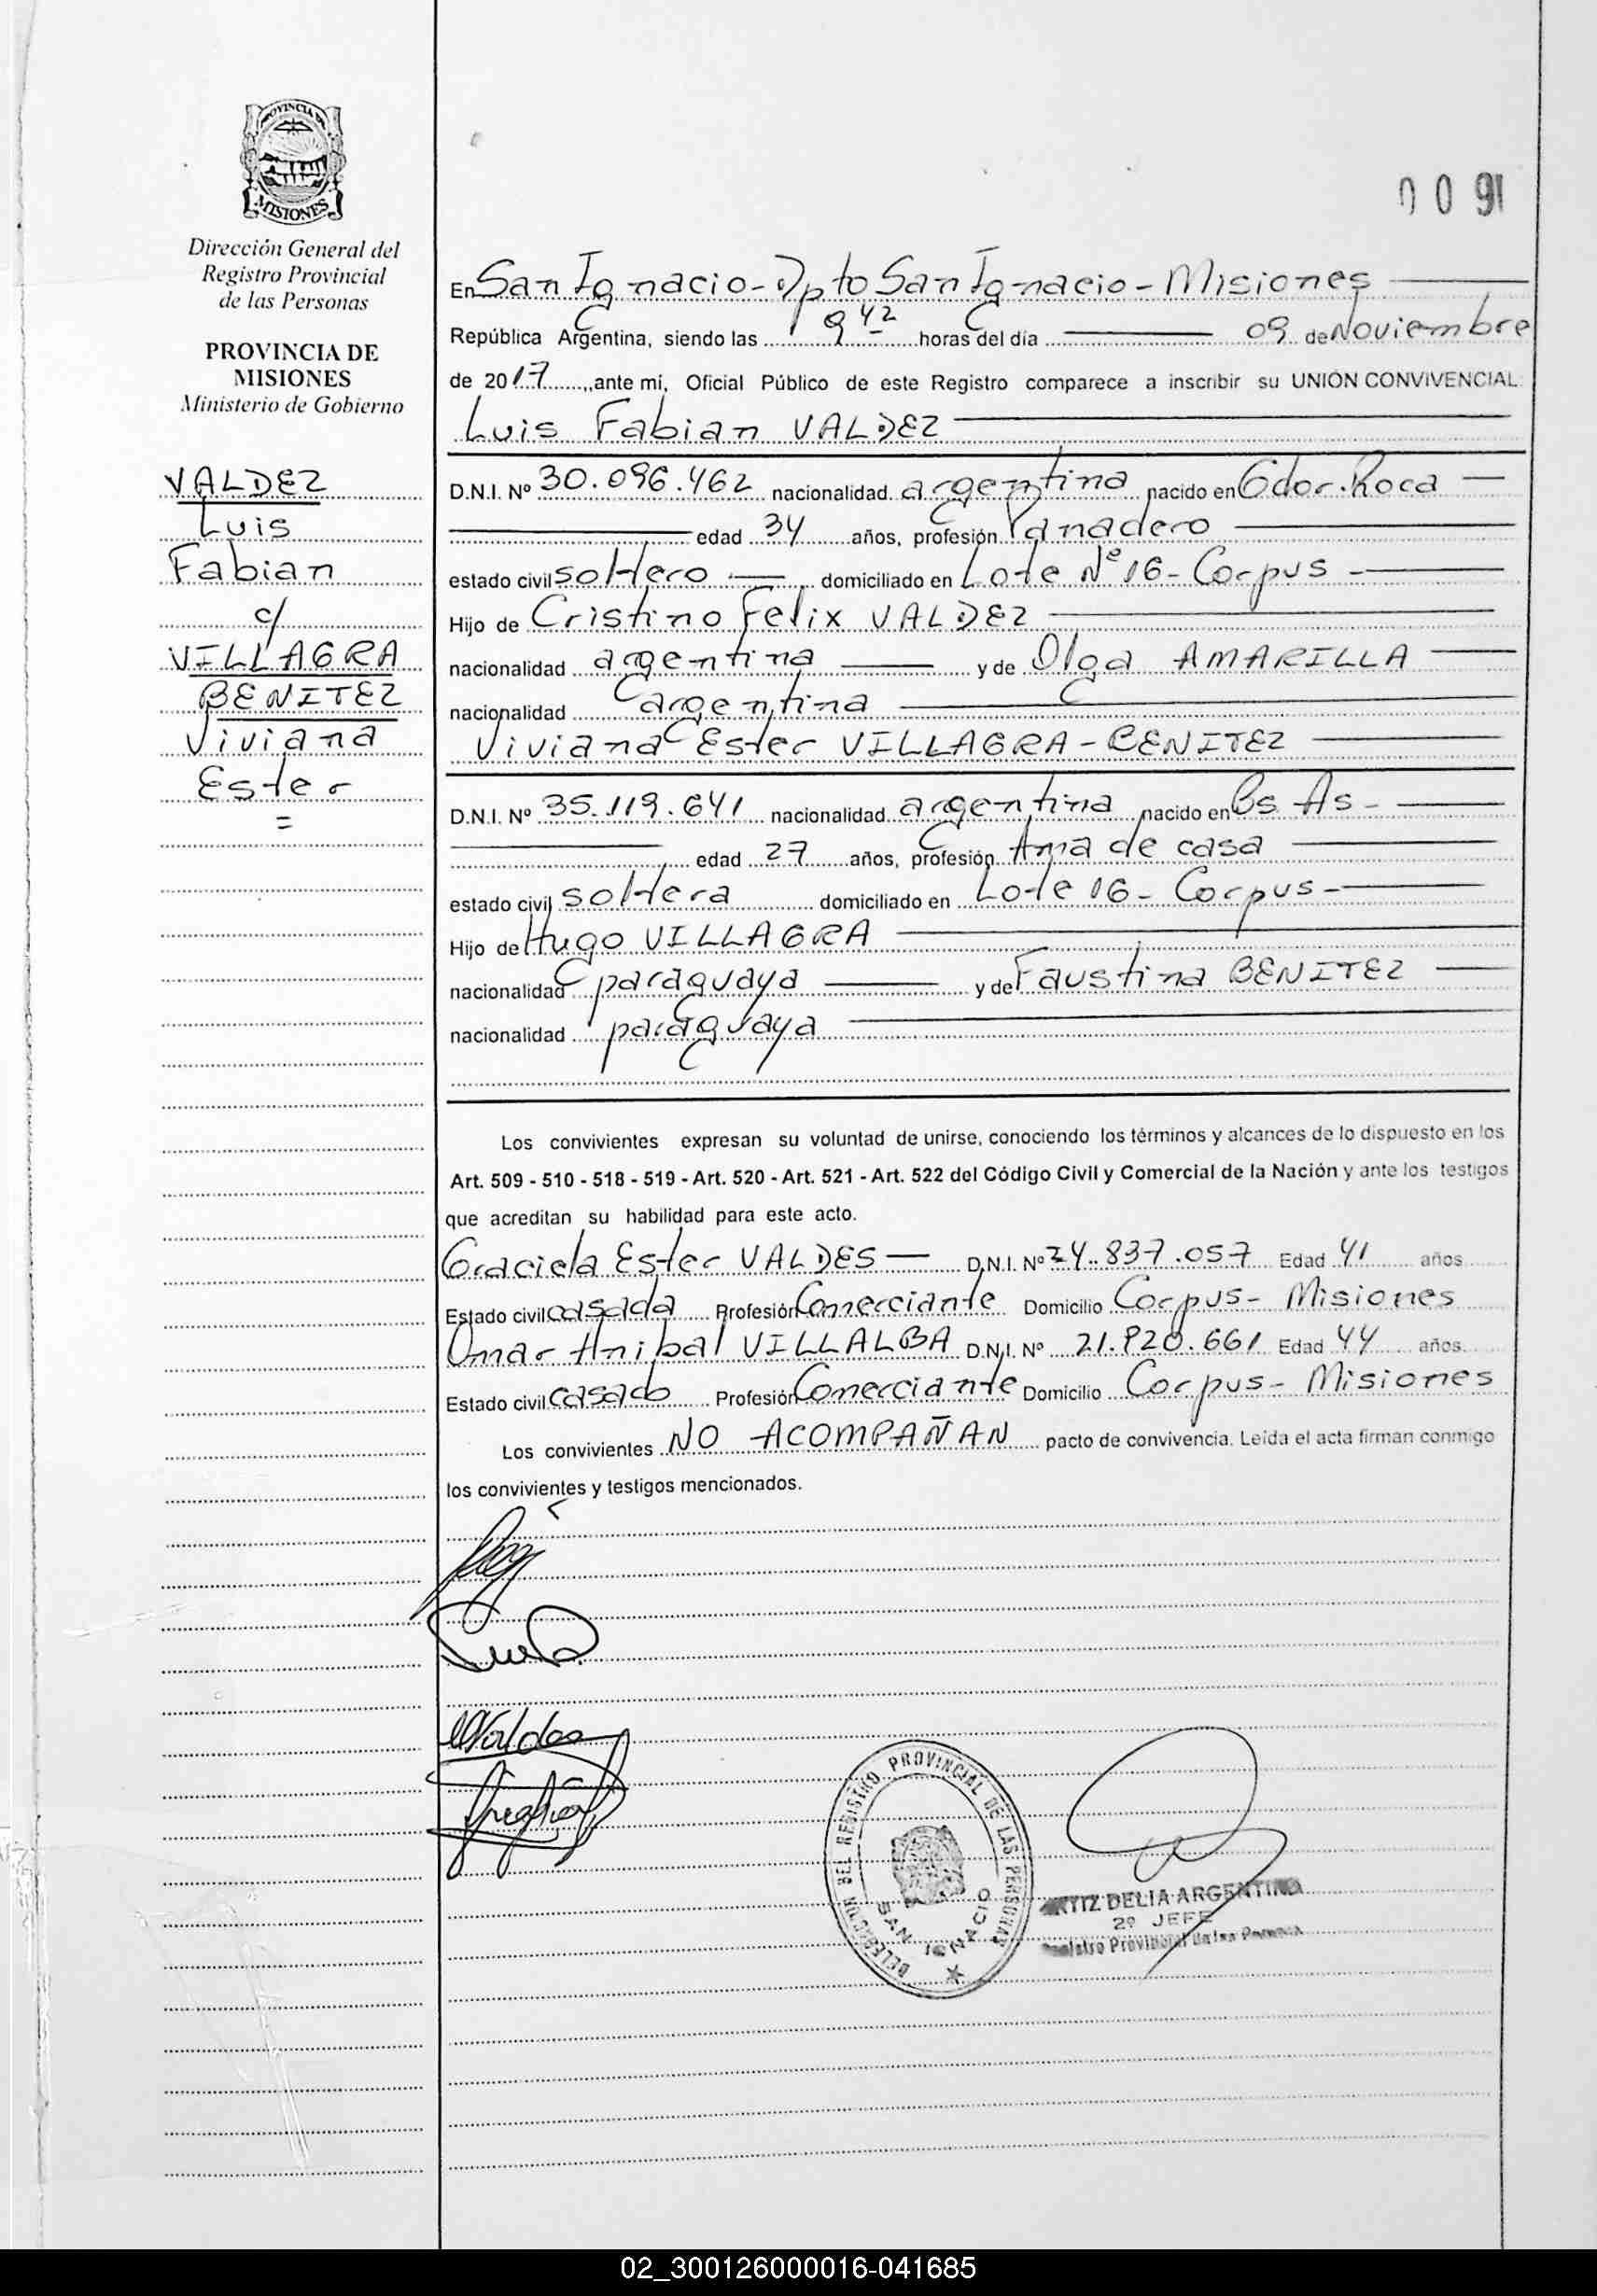 PROVINCIA DE
MISIONES
Dirección General del
Registro Provincial
de las Personas
PROVINCIA DE
MISIONES
Ministerio de Gobierno
VALDEZ
Luis
Fabian
c/
VILLAGRA
BENITEZ
Viviana
Ester
=
0091
En San Ignacio - Dpto San Ignacio - Misiones
República Argentina, siendo las 9 42 horas del día 09 de Noviembre
de 2017, ante mí, Oficial Público de este Registro comparece a inscribir su UNION CONVIVENCIAL:
Luis Fabian VALDEZ
D.N.I. Nº 30.096.462 nacionalidad argentina nacido en Gdor. Roca
edad 34 años, profesión Panadero
estado civil soltero domiciliado en Lote Nº 16 - Corpus -
Hijo de Cristino Felix VALDEZ
nacionalidad argentina y de Olga AMARILLA
nacionalidad argentina
Viviana Ester VILLAGRA - BENITEZ
D.N.I. Nº 35.119.641 nacionalidad argentina nacido en Bs As -
edad 27 años, profesión Ama de casa
estado civil soltera domiciliado en Lote 16 - Corpus -
Hijo de Hugo VILLAGRA
nacionalidad paraguaya y de Faustina BENITEZ
nacionalidad paraguaya
Los convivientes expresan su voluntad de unirse, conociendo los términos y alcances de lo dispuesto en los
Art. 509 - 510 - 518 - 519 - Art. 520 - Art. 521 - Art. 522 del Código Civil y Comercial de la Nación y ante los testigos
que acreditan su habilidad para este acto.
Graciela Ester VALDES D.N.I. Nº 24.837.057 Edad 41 años
Estado civil casada Profesión Comerciante Domicilio Corpus - Misiones
Omar Anibal VILLALBA D.N.I. Nº 21.820.661 Edad 44 años
Estado civil casado Profesión Comerciante Domicilio Corpus - Misiones
Los convivientes NO ACOMPAÑAN pacto de convivencia. Leída el acta firman conmigo
los convivientes y testigos mencionados.
Valdes
DELEGACION DEL REGISTRO PROVINCIAL DE LAS PERSONAS
SAN IGNACIO
DELIA ARGENTINA
2º JEFE
Registro Provincial de las Personas
02_300126000016-041685